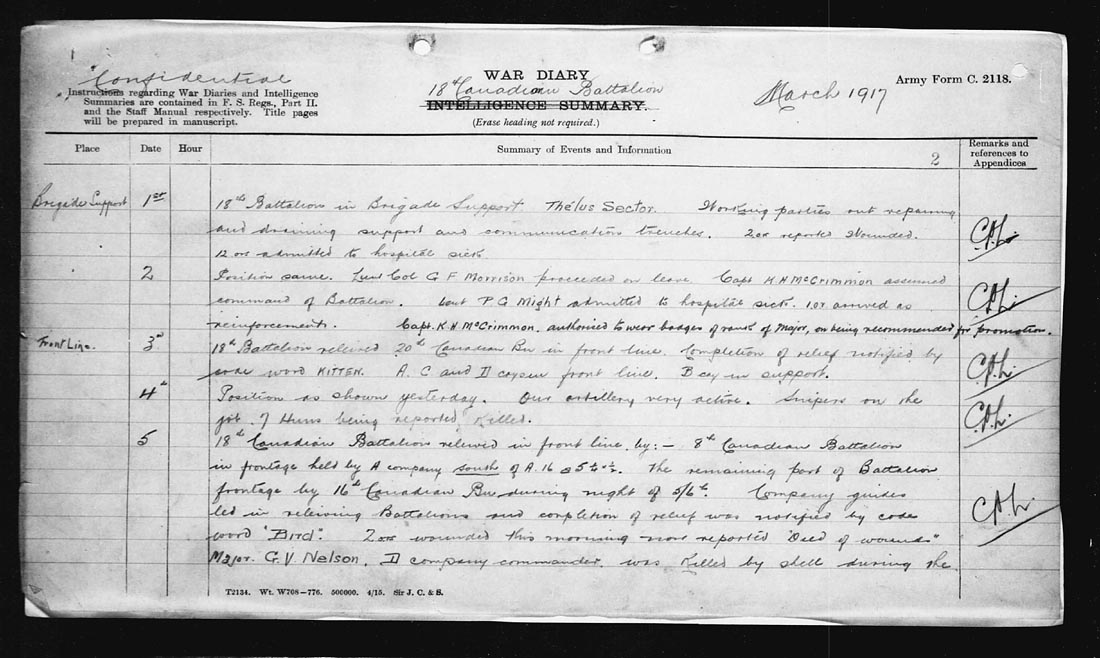 Confidential
WAR DIARY
Army Form C. 2118.
Instructions regarding War Diaries and Intelligence
Summaries are contained in F. S. Regs., Part II.
and the Staff Manual respectively. Title pages
will be prepared in manuscript.
18th Canadian Battalion
INTELLIGENCE SUMMARY.
(Erase heading not required.)
March 1917
Place Date Hour Summary of Events and Information 2 Remarks and references to Appendices
Brigade Support 1st 18th Battalion in Brigade Support Thélus Sector. Working parties out repairing
and draining support and communication trenches. 2 or reported Wounded.
12 ors admitted to hospital sick
2 Position same. Lieut Col G F Morrison proceeded on leave. Capt K H McCrimmon assumed
command of Battalion. Lieut P G Might admitted to hospital sick. 1 or arrived as
reinforcement. Capt. K H McCrimmon. authorised to wear badges of rank of Major, on being recommended for promotion.
Front Line. 3rd 18th Battalion relieved 20th Canadian Bn in front line. Completion of relief notified by
code word KITTEN. A. C and D coys in front line. B coy in support.
4th Position as shown yesterday. Our artillery very active. Snipers on the
job 7 Huns being reported Killed.
5 18th Canadian Battalion relieved in front line by:– 8th Canadian Battalion
in frontage held by A company south of A.16 The remaining part of Battalion
frontage by 16th Canadian Bn during night of 5/6th. Company guides
led in relieving Battalions and completion of relief was notified by code
word "Bird". 2 ors wounded this morning now reported "Died of wounds"
Major. G. V. Nelson, D company commander. was Killed by shell during the
T2134. Wt. W708–776. 500000. 4/15. Sir J. C. & S.